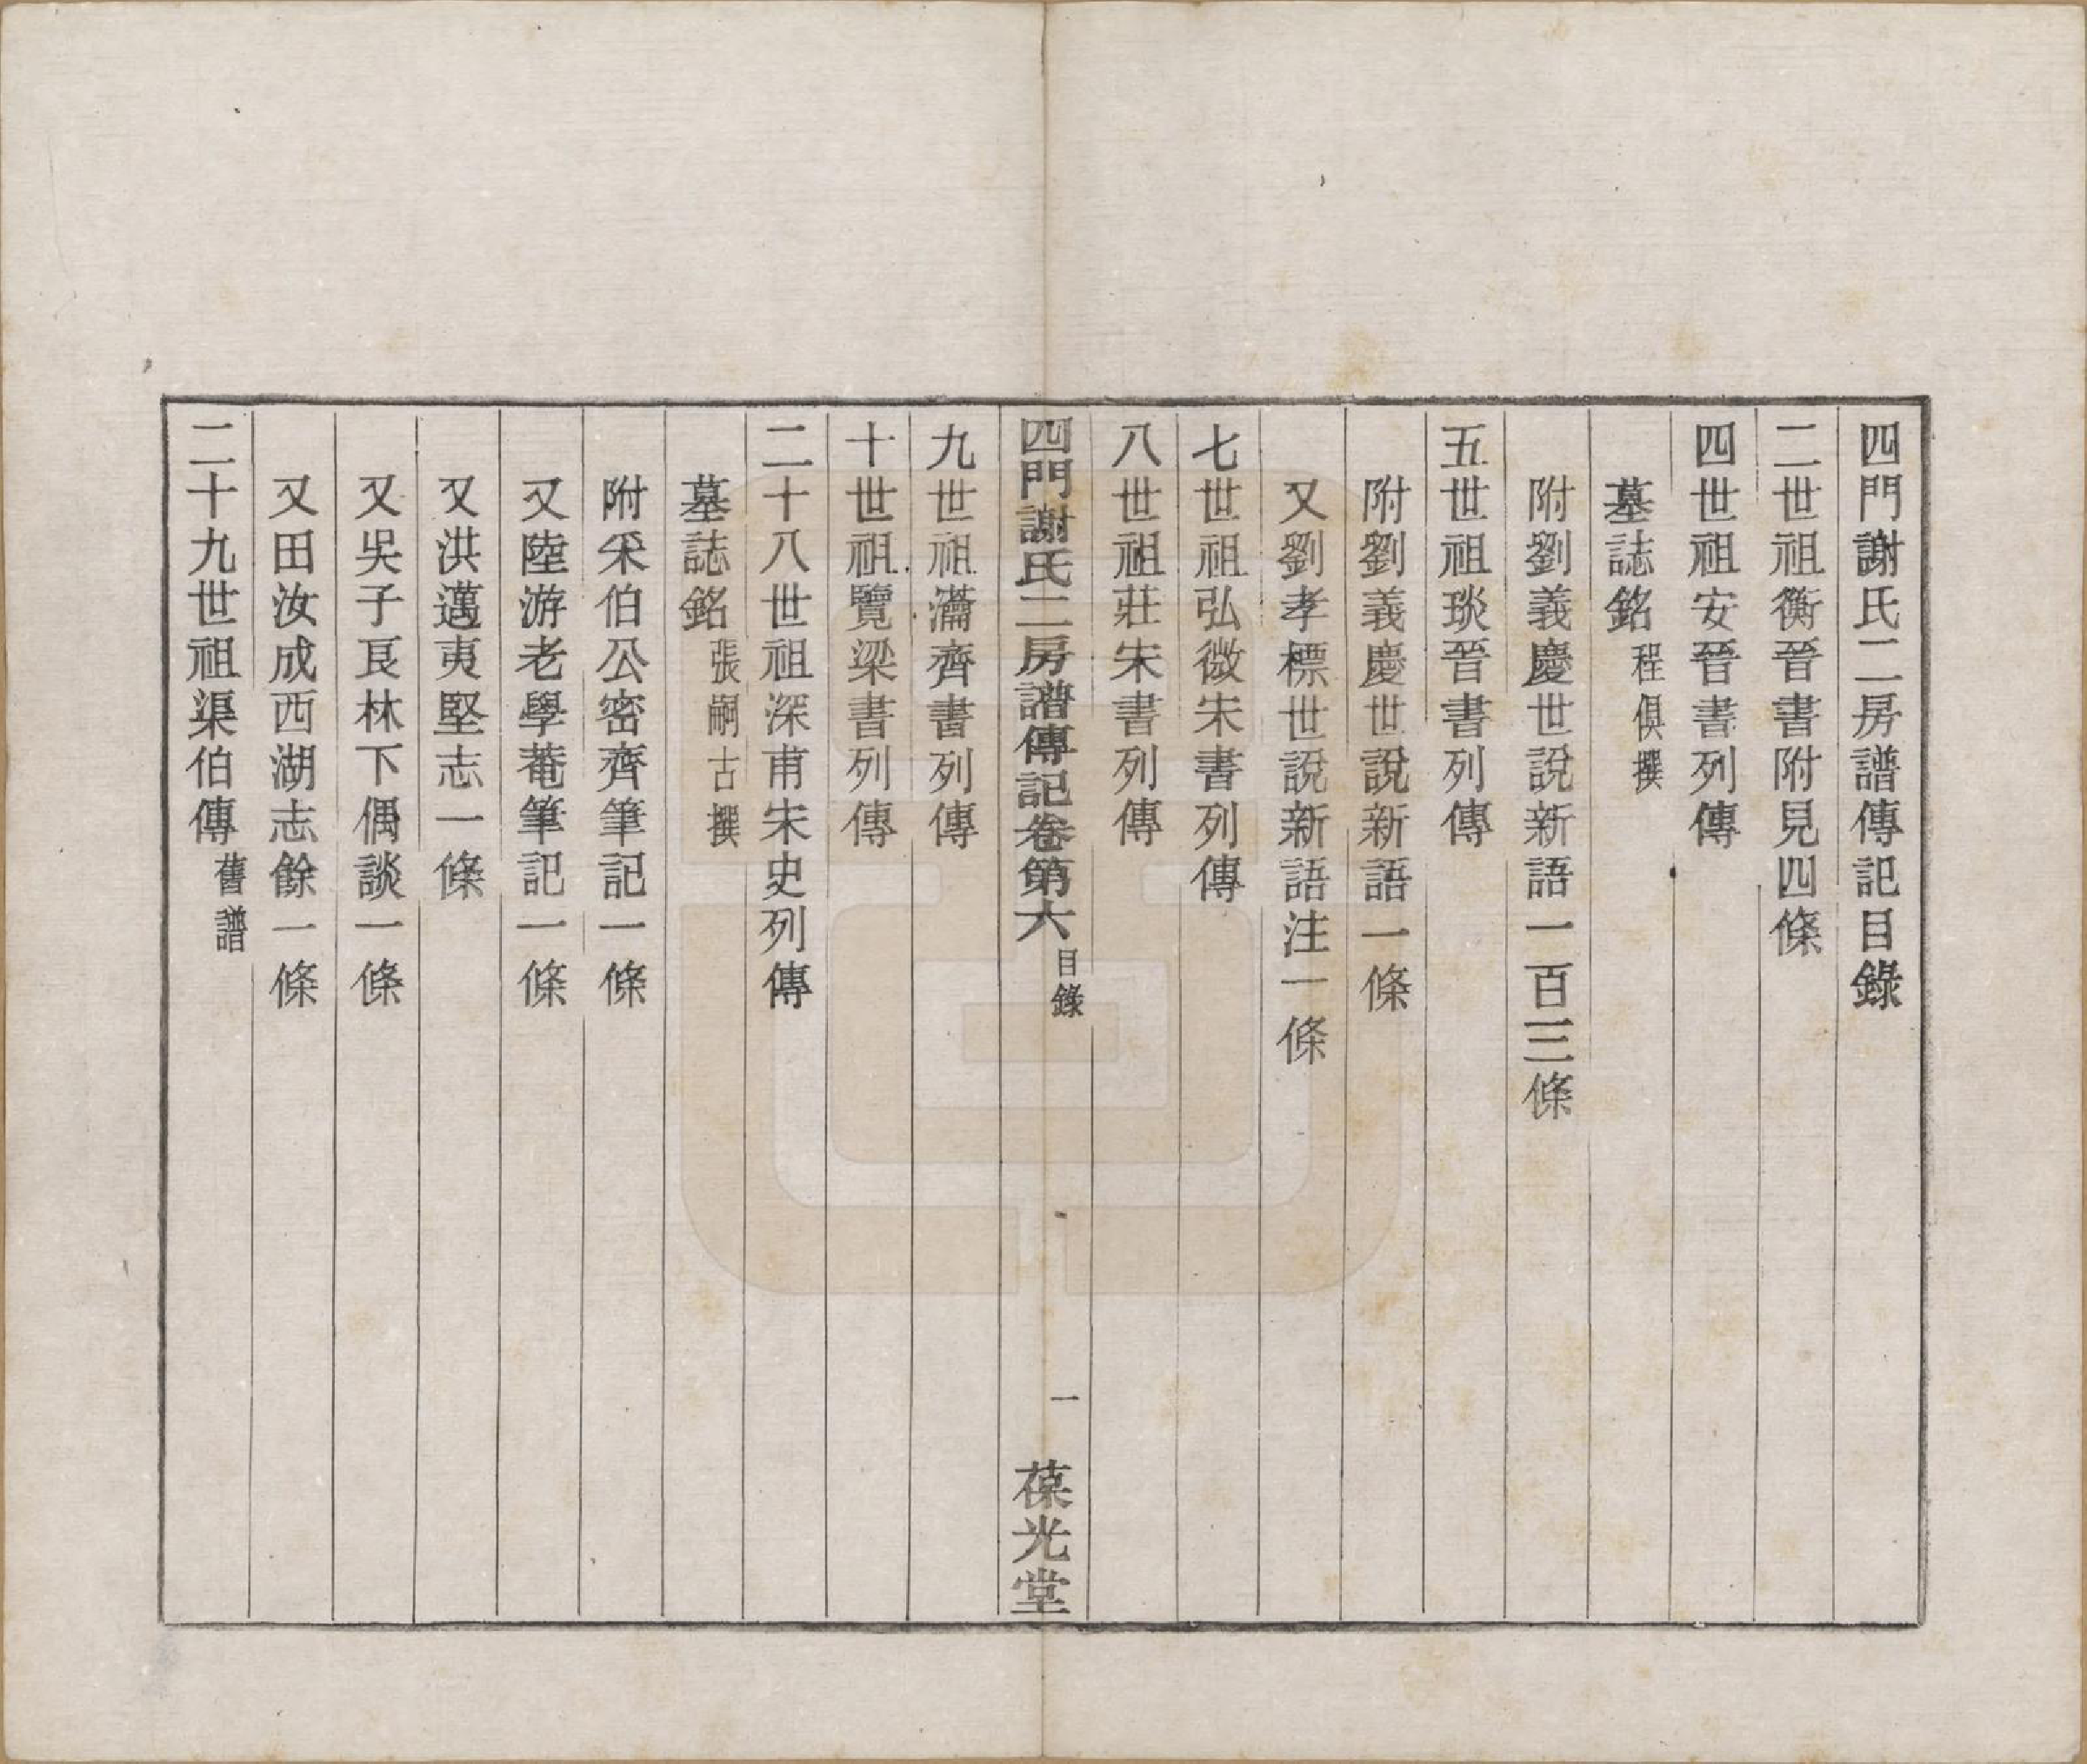 四門謝氏二房譜傳記目錄
二世祖衡晉書附見四條
四世祖安晉書列傳
墓誌銘程俱撰
附劉義慶世說新語一百三條
五世祖琰晉書列傳
附劉義慶世說新語一條
又劉孝標世說新語注一條
七世祖弘微宋書列傳
八世祖莊宋書列傳
四門謝氏二房譜傳記卷第六 目錄 一 葆光堂
九世祖瀹齊書列傳
十世祖覽梁書列傳
二十八世祖深甫宋史列傳
墓誌銘張嗣古撰
附釆伯公密齊筆記一條
又陸游老學菴筆記一條
又洪邁夷堅志一條
又吳子良林下偶談一條
又田汝成西湖志餘一條
二十九世祖渠伯傳舊譜